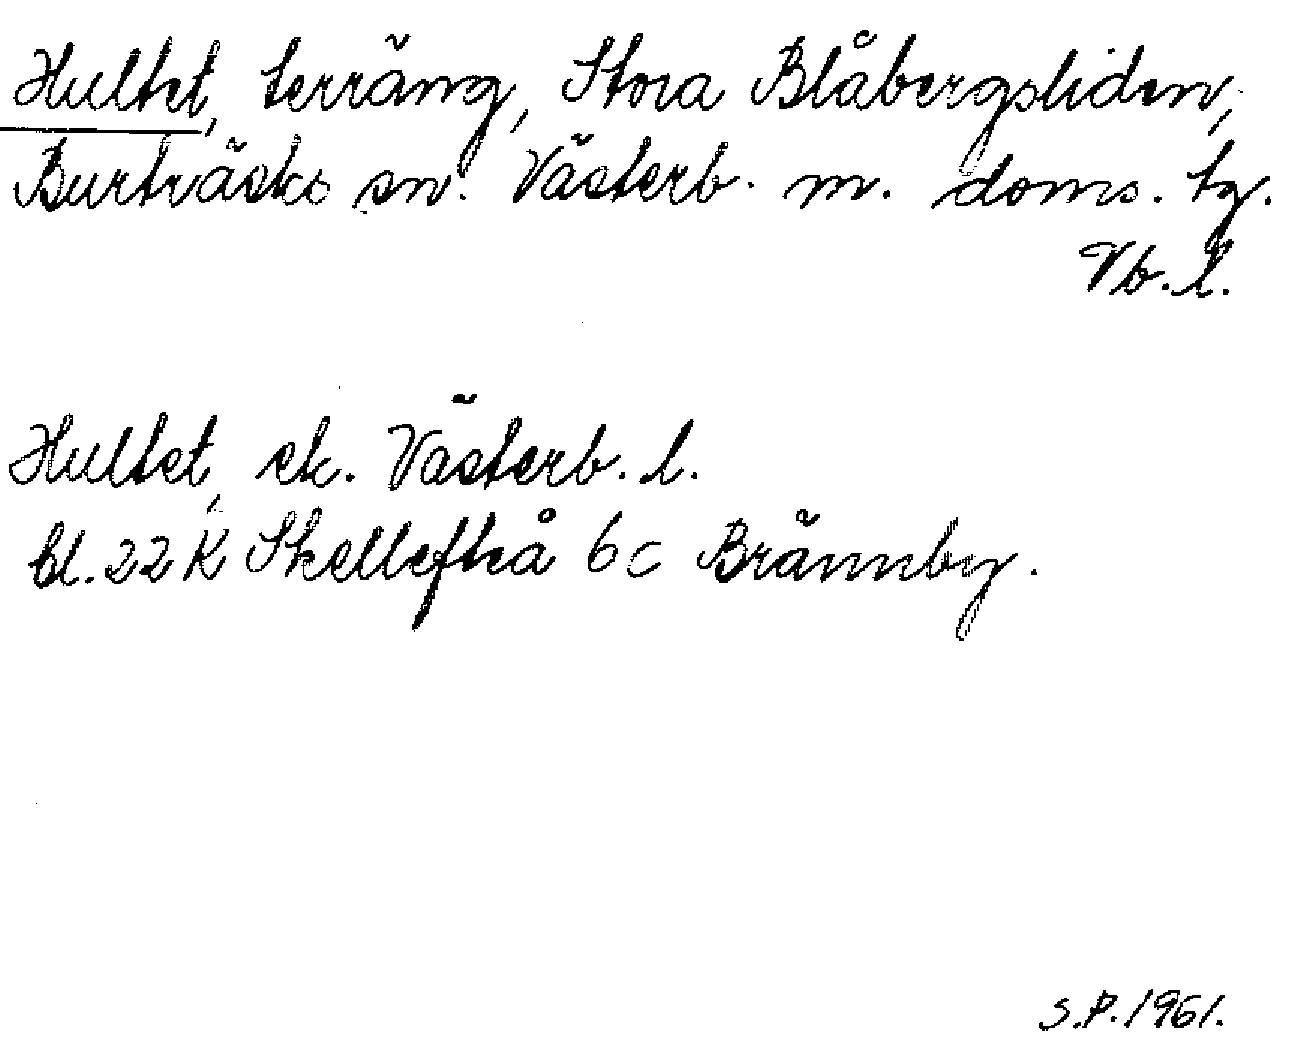 Hultet, terräng, Stora Blåbergsliden,
Burträsks sn. Västerb. m. doms. tg.
Vb. l.
Hultet, ek. Västerb. l.
bl. 22 K Skellefteå 6c Brännby.
S.P. 1961.